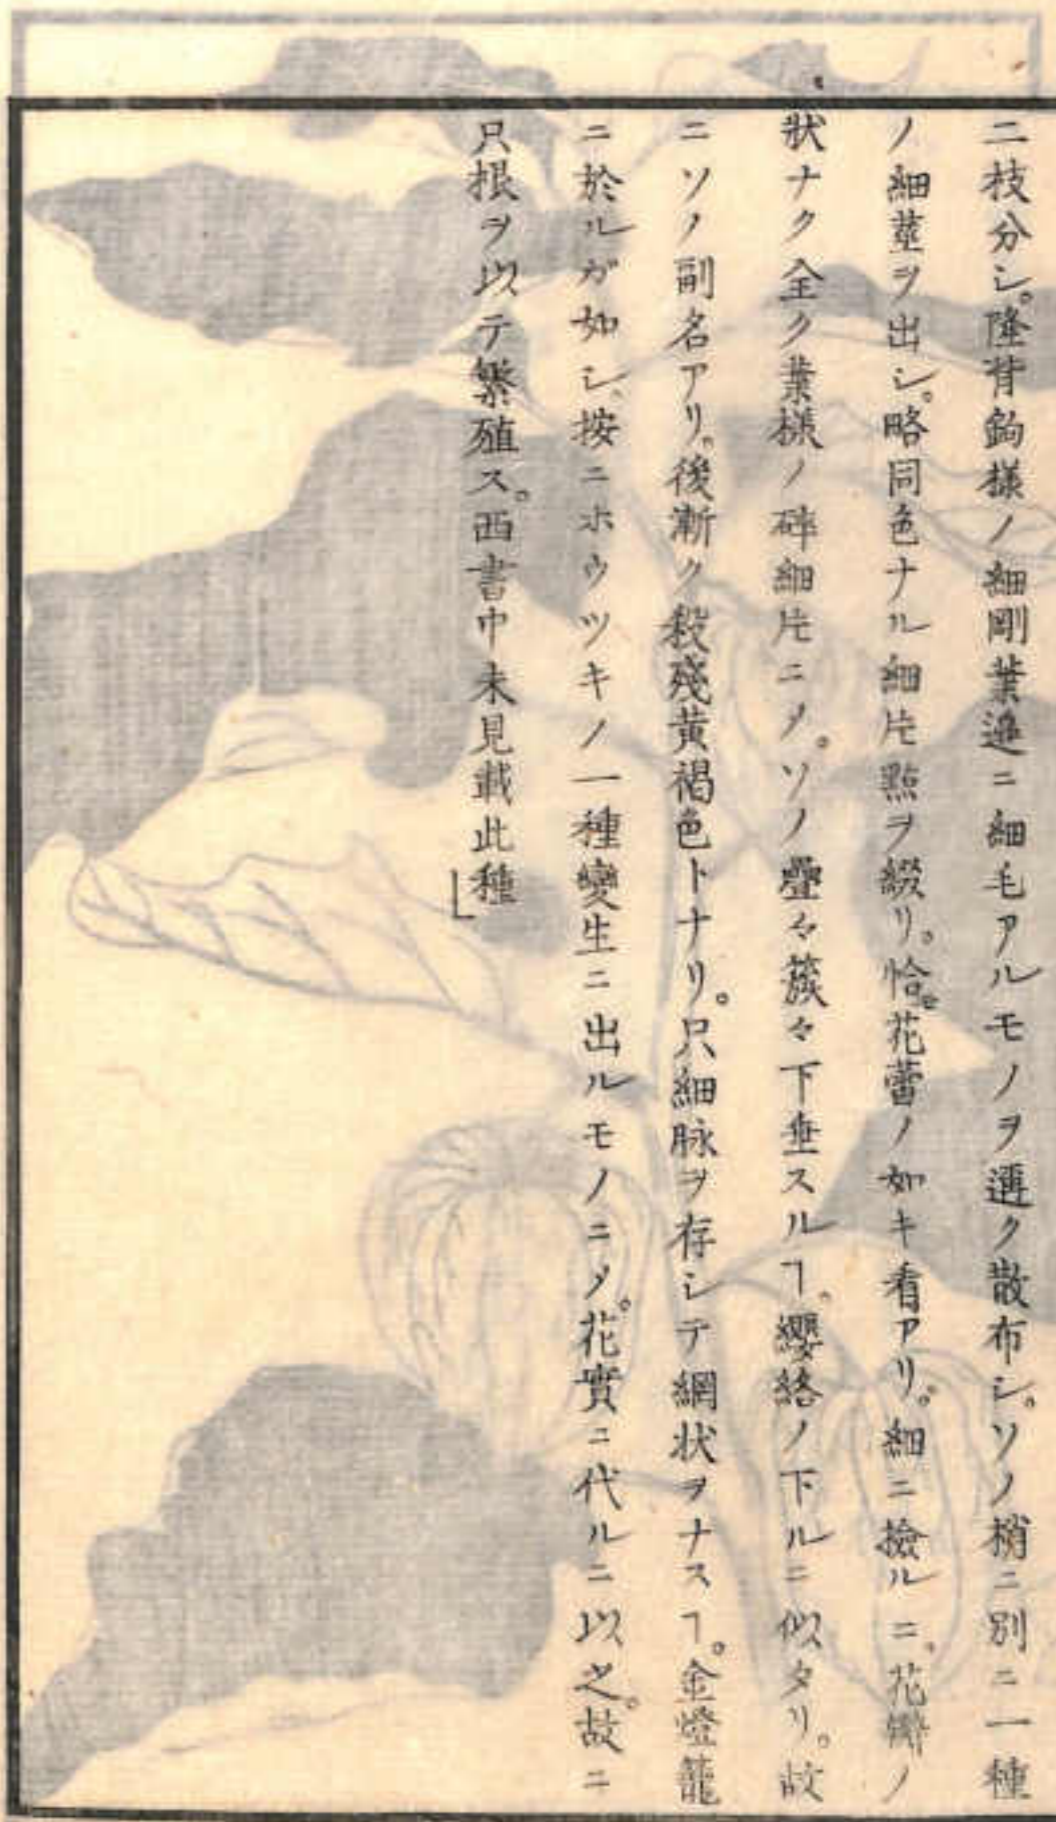 二枝分シ。隆背鈎様ノ細剛葉邊ニ細毛アルモノヲ遍ク散布シ。ソノ梢ニ別ニ一種
ノ細莖ヲ出シ。略同色ナル細片點ヲ綴リ。恰花蕾ノ如キ看アリ。細ニ撿ルニ。花瓣ノ
狀ナク全ク葉様ノ碎細片ニ〆。ソノ疊々簇々下垂スルヿ。纓絡ノ下ルニ似タリ。故
ニソノ副名アリ。後漸ク殺殘黄褐色トナリ。只細脉ヲ存シテ網状ヲナスヿ。金燈籠
ニ於ルガ如シ。按ニホウツキノ一種變生ニ出ルモノニ〆。花實ニ代ルニ以之。故ニ
只根ヲ以テ繁殖ス。西書中未見載此種」